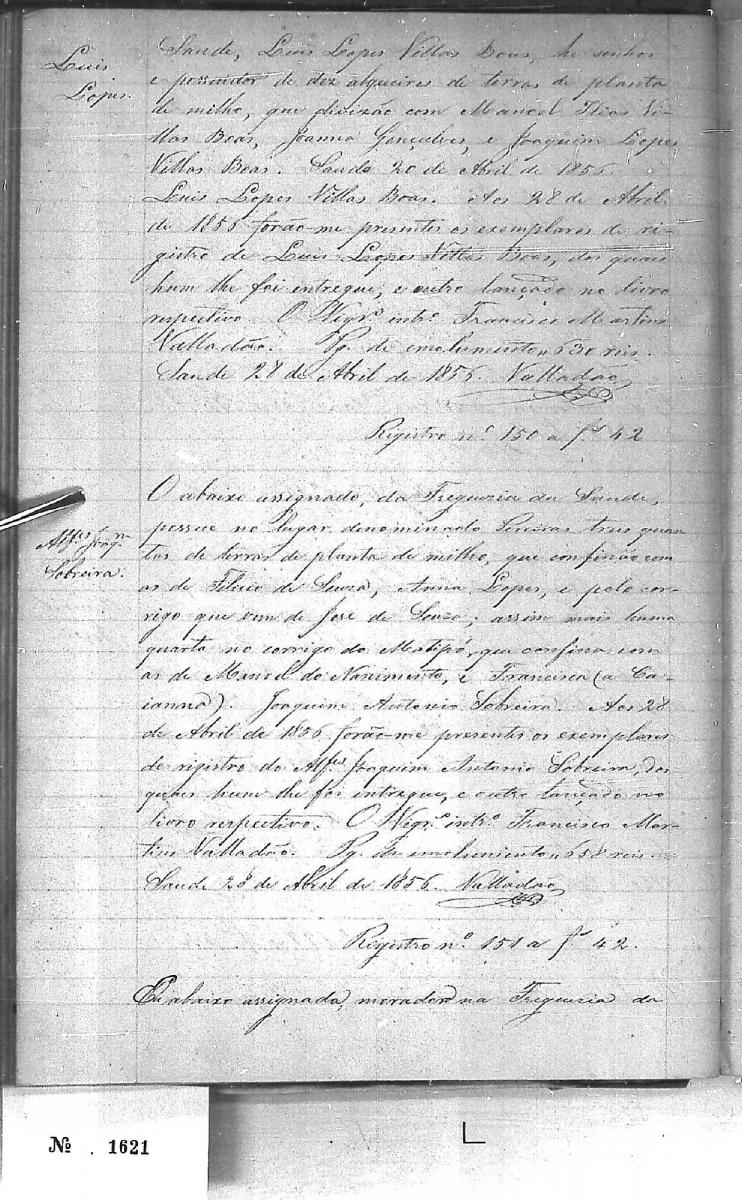 Luis
Lopes.
Saude, Luis Lopes Villas Boas, he senhor
e possuidor de dez alqueires de terras de planta
de milho, que divizão com Manoel Vi-
llas Boas, Joanna Gonçalves, e Joaquim Lopes
Villas Boas. Saude 20 de Abril de 1856.
Luis Lopes Villas Boas. Aos 28 de Abril
de 1856 forão-me presentes os exemplares de re-
gistro de Luis Lopes Villas Boas, dos quais
hum lhe foi entregue, e outro lançado no livro
respectivo. O Vigr.º intr.º Francisco Martins
Valladão. Pg. de emolumento 630 reis.
Saude 28 de Abril de 1856. Valladão
Registro n.º 150 a f.s 42
Alf.es Joaq.m
Sobreira.
O abaixo assignado, da Freguezia da Saude,
possue no lugar denominado tres quar
tos de terras de planta de milho, que confinão com
as de Felicio de Souza, Anna Lopes, e pelo cor-
rigo que vem de Jose de Souza; assim mais huma
quarta no corrigo do Matipó, que confina com
as de Manoel do Nascimento, e Francisca (a Ca-
ianna). Joaquim Antonio Sobreira. Aos 28
de Abril de 1856 forão-me presentes os exemplares
de registro do Alf.es Joaquim Antonio Sobreira, dos
quais hum lhe foi entregue, e outro lançado no
livro respectivo. O Vigr.º intr.º Francisco Mar-
tins Valladão. Pg. de emolumento 658 reis.
Saude 28 de Abril de 1856. Valladão
Registro n.º 151 a f.s 42.
O abaixo assignado, morador na Freguezia da
№ . 1621